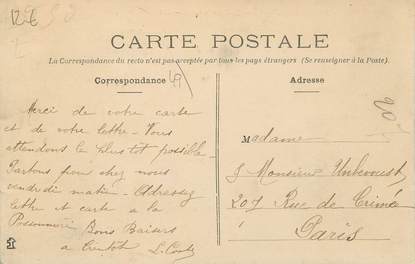 12€
CARTE POSTALE
La Correspondance du recto n'est pas acceptée par tous les pays étrangers (Se renseigner à la Poste).
Correspondance
49
Adresse
20
Merci de votre carte
et de votre lettre - Vous
attendons le plus tôt possible -
Partons pour chez nous
vendredi matin - Adressez
lettre et carte à la
Poissonnerie Bons Baisers
à L.
Madame
& Monsieur
207 Rue de Crimée
Paris